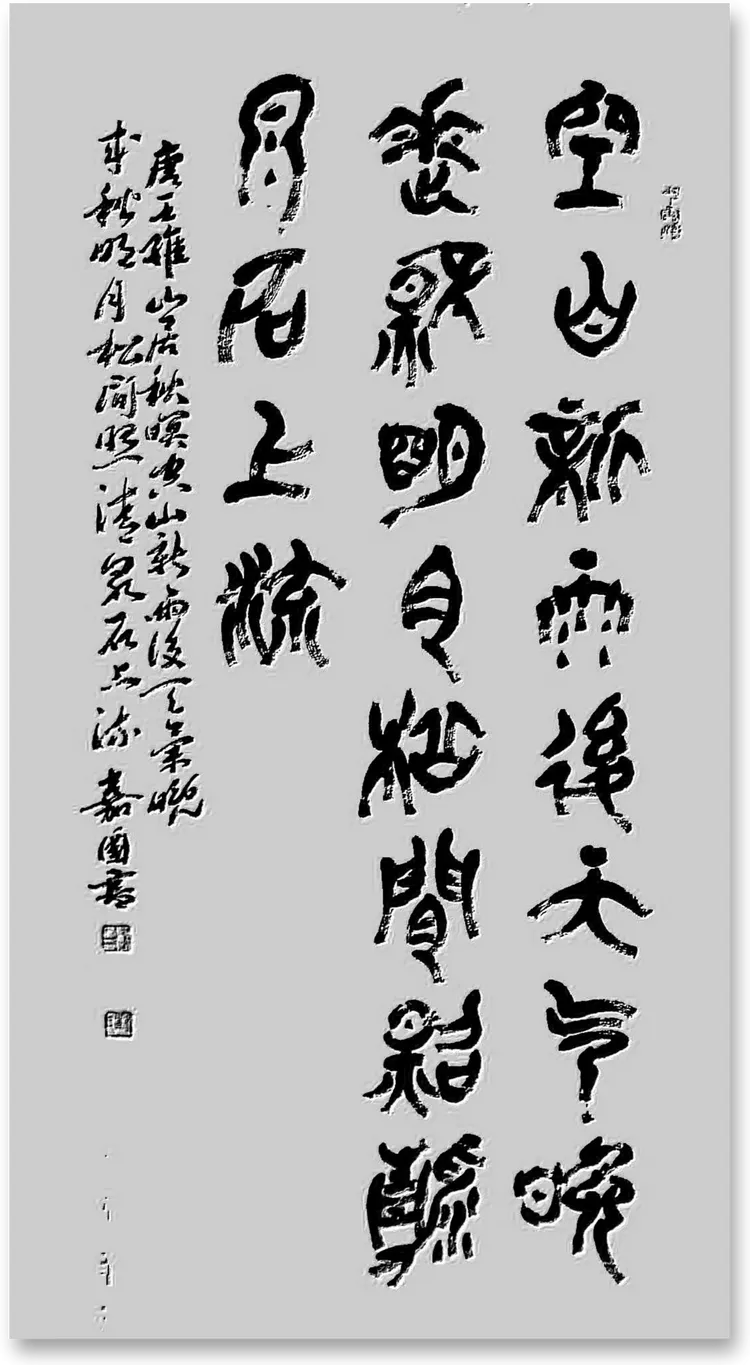 空山新雨後天气晚
來秋明月松間照清
泉石上流
唐王維山居秋暝空山新雨後天氣晚
來秋明月松間照清泉石上流 嘉書